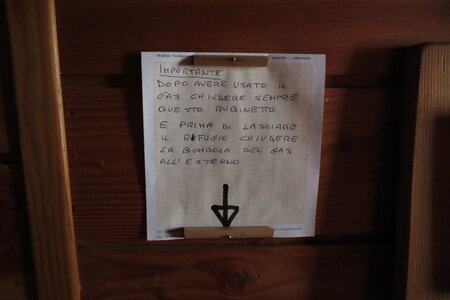 IMPORTANTE
DOPO AVERE USATO IL
GAS CHIUDERE SEMPRE
QUESTO RUBINETTO
E PRIMA DI LASCIARE
IL RIFUGIO CHIUDERE
LA BOMBOLA DEL GAS
ALL'ESTERNO